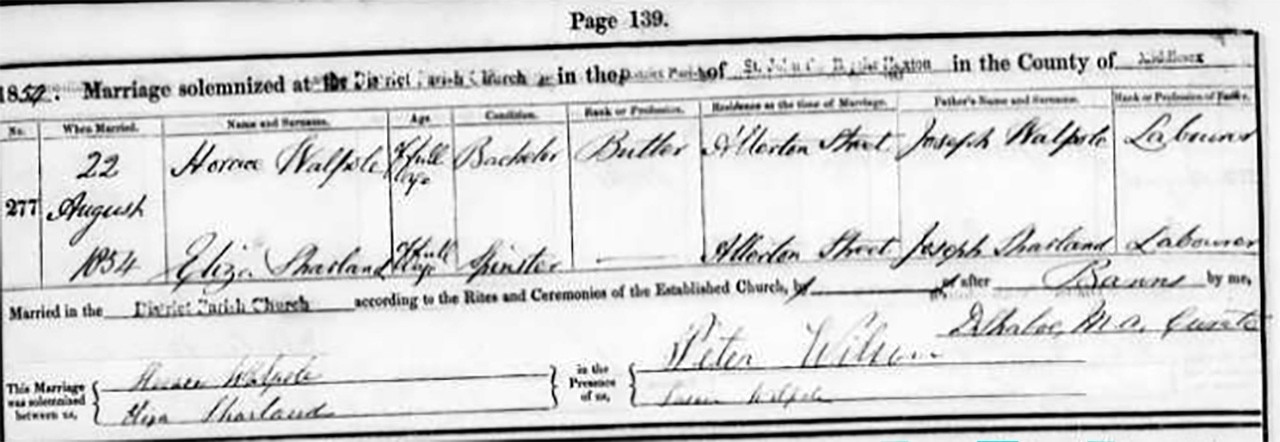 Page 139.
1854. Marriage solemnized at the District Parish Church in the District Parish of St. John Baptist Hoxton in the County of Middlesex
No. When Married. Name and Surname. Age Condition. Rank or Profession. Residence at the time of Marriage. Father's Name and Surname. Rank or Profession of Father.
22 Horace Walpole Of full Age Bachelor Butler Allerton Street Joseph Walpole Labourer
277 August
1854 Eliza Sharland Of full Age Spinster Allerton Street Joseph Sharland Labourer
Married in the District Parish Church according to the Rites and Ceremonies of the Established Church, by or after Banns by me,
M.A. Curate
This Marriage was solemnized between us, Horace Walpole in the Presence of us, Peter Wilson
Eliza Sharland Walpole